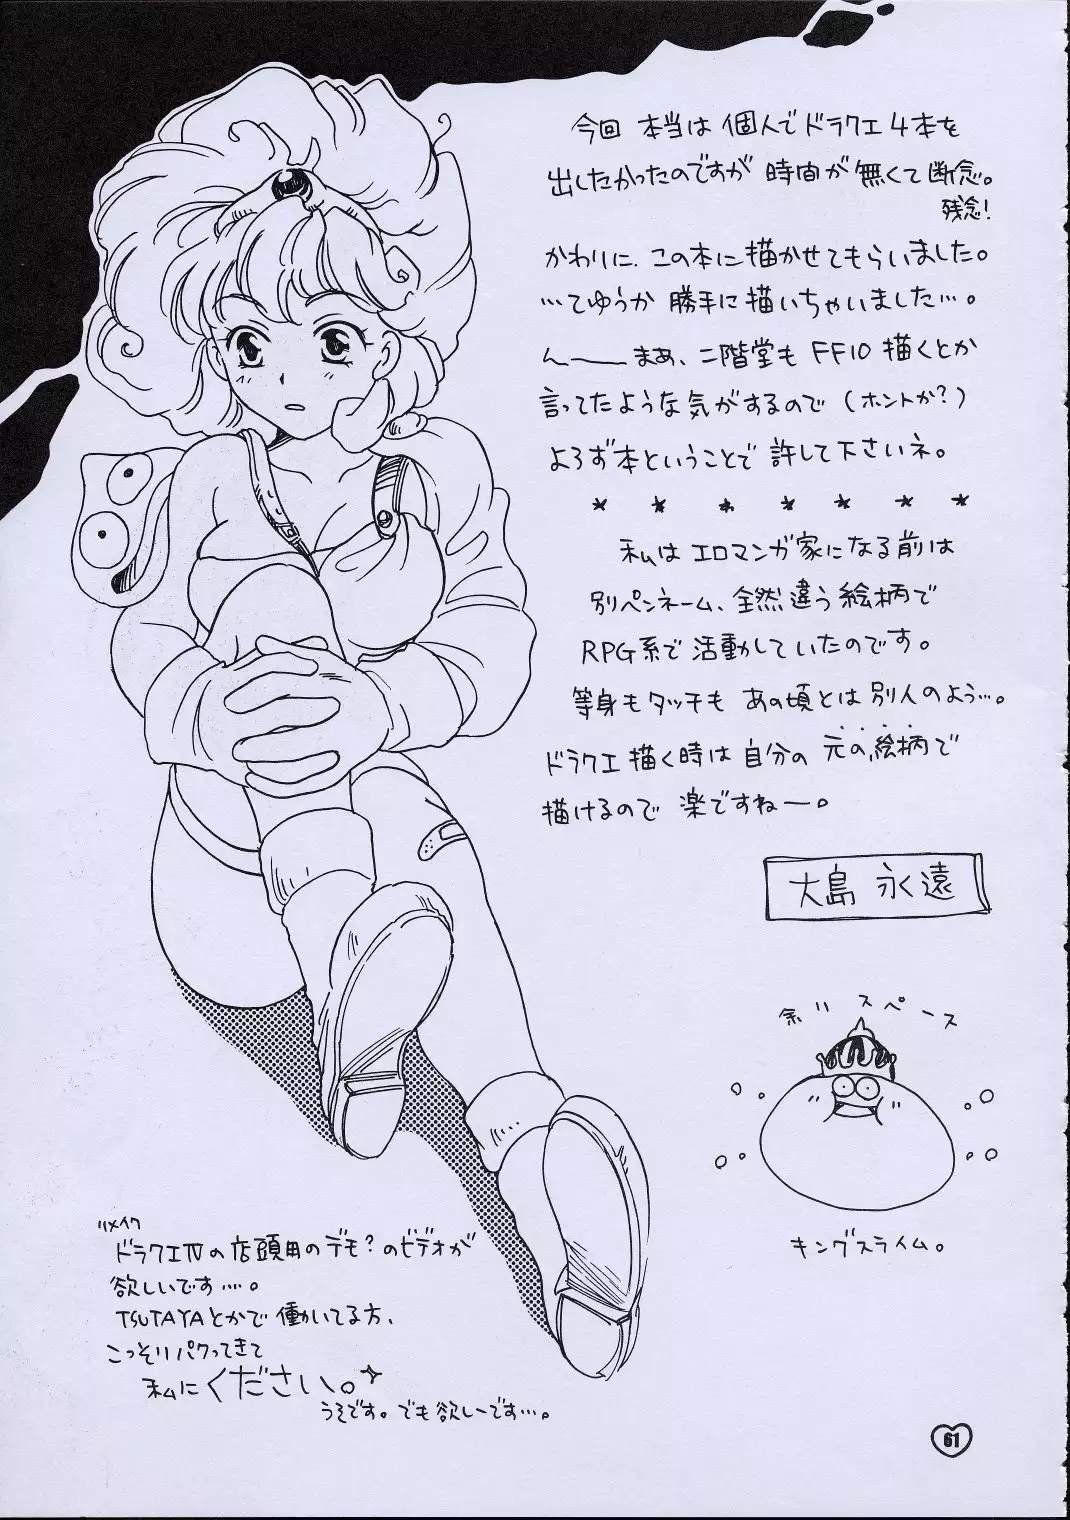 今回 本当は 個人で ドラクエ4本を
出したかったのですが 時間が 無くて断念。
残念!
かわりに、この本に描かせてもらいました。
…てゆうか 勝手に描いちゃいました…。
ん――まあ、二階堂も FF10 描くとか
言ってたような気がするので(ホントか?)
よろず本ということで 許して下さいネ。
* * * * * * *
私は エロマンガ家になる前は
別ペンネーム、全然違う絵柄で
RPG系で活動していたのです。
等身もタッチも あの頃とは 別人のよう…。
ドラクエ描く時は 自分の 元の絵柄で
描けるので 楽ですねー。
大島 永遠
余りスペース
キングスライム。
リメイク
ドラクエⅣの店頭用のデモ?のビデオが
欲しいです…。
TSUTAYAとかで働いてる方、
こっそりパクってきて
私にください。
うそです。でも欲しーです…。
61